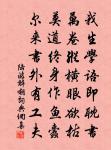 我生學語即耽書
萬卷縱橫眼欲枯
莫道終身作魚蠹
尔来書外有工夫
陸游解嘲